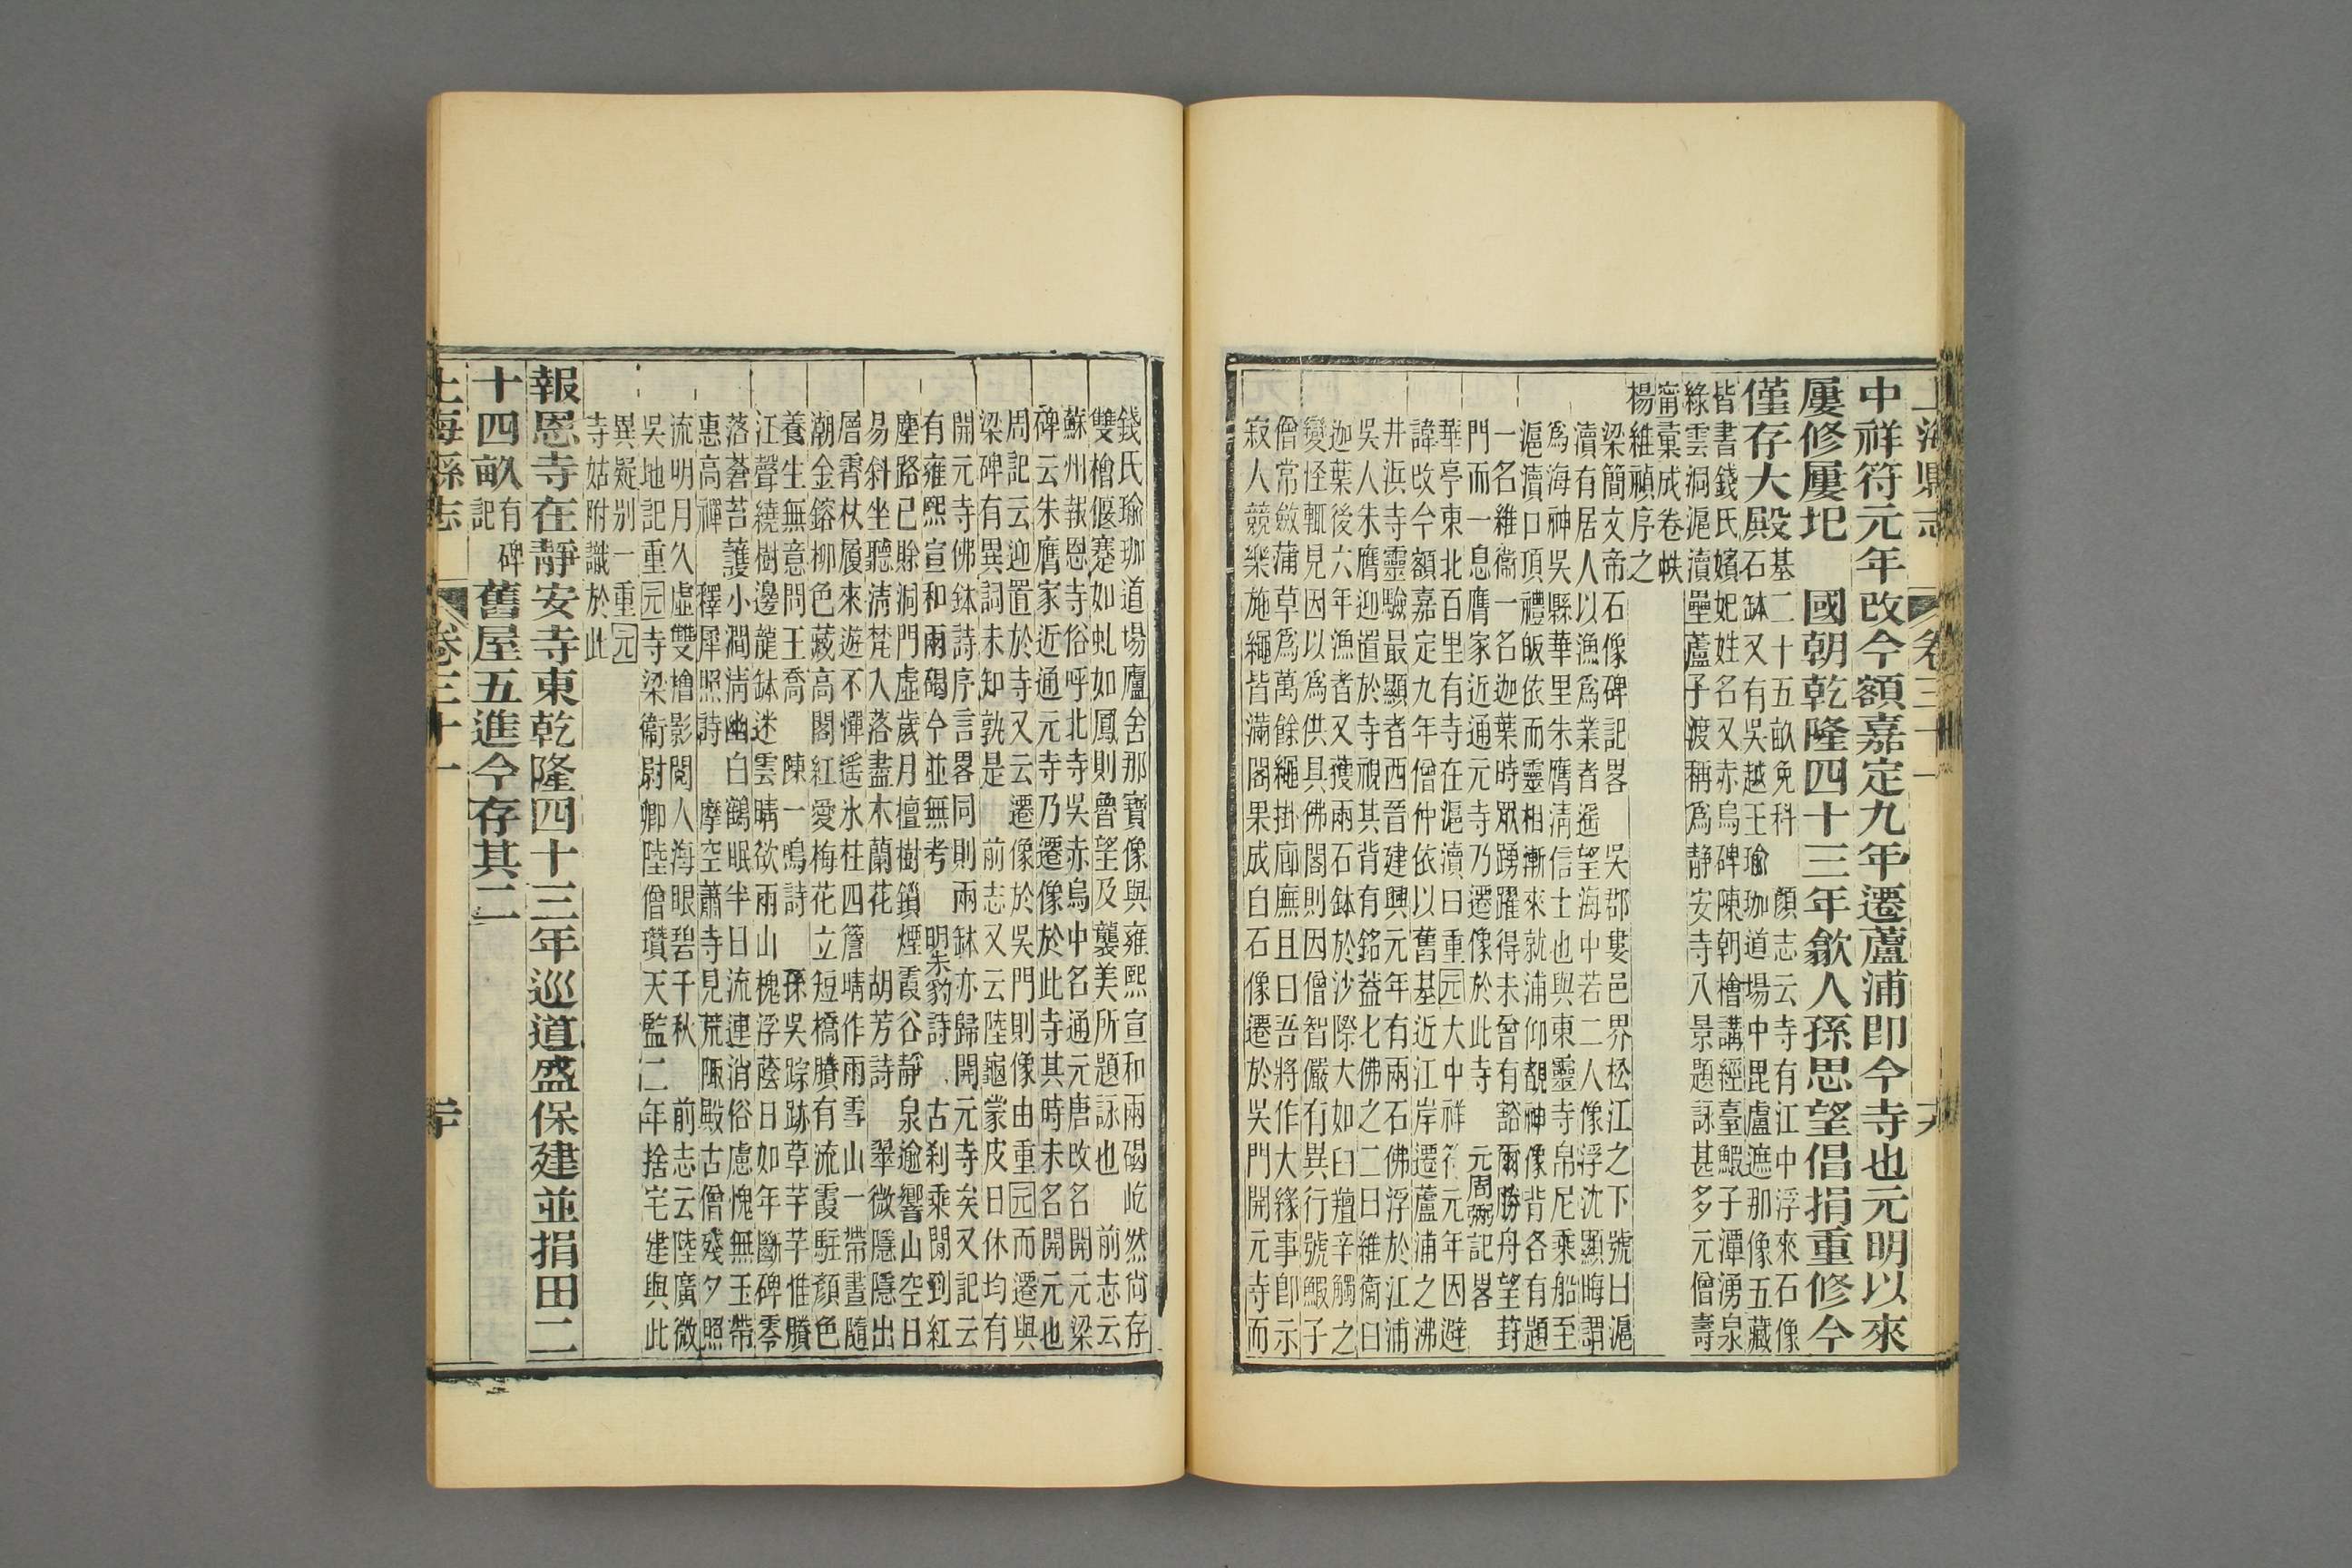 上海縣志 卷三十一 十九
中祥符元年改今額嘉定九年遷蘆浦卽今寺也元明以來
屢修屢圯 國朝乾隆四十三年歙人孫思望倡捐重修今
僅存大殿
基二十五畝免科 顏志云寺有江中浮來石像
石缽又有吳越王瑜珈道場中毘盧遮那像五藏
皆書錢氏嬪妃姓名又赤烏碑陳朝檜講經臺鰕子潭湧泉
綠雲洞滬瀆壘蘆子渡稱爲靜安寺八景題詠甚多元僧壽
甯彙成卷帙
楊維禎序之
梁簡文帝石像碑記畧 吳郡婁邑界松江之下號曰滬
瀆有居人以漁爲業者遙望海中若二人像浮沈顯晦謂
爲海神吳縣華里朱膺淸信士也與東靈寺帛尼乘船至
滬瀆口頂禮皈依而靈相漸來就浦仰覩神像背各有題
一名維衞一名迦葉時眾踴躍得未曾有豁爾勝舟望葑
門而一息膺家近通元寺乃遷像於此寺 元周弼記畧
華亭東北百里有寺在滬瀆曰重元大中祥符元年因避
諱改今額嘉定九年僧仲依以舊基近江岸遷蘆浦之沸
井浜寺靈驗最顯者西晉建興元年有兩石佛浮於江浦
吳人朱膺迎置於寺視其背有銘蓋七佛之二曰維衞曰
迦葉後六年漁者又獲兩石鉢於沙際大如臼羶辛觸之
變怪輒見因以爲供具佛閣則因僧智儼有異行號鰕子
僧常斂蒲草爲萬餘繩掛廊廡且曰吾將作大緣事卽示
寂人競樂施繩皆滿閣果成白石像遷於吳門開元寺而
錢氏瑜珈道場廬舍那寶像與雍熙宣和兩碣屹然尚存
雙檜偃蹇如虬如鳳則魯望及襲美所題詠也 前志云
蘇州報恩寺俗呼北寺吳赤烏中名通元唐改名開元梁
碑云朱膺家近通元寺乃遷像於此寺其時未名開元也
周記云迎置於寺又云遷像於吳門則像由重元而遷與
梁碑有異詞未知孰是 前志又云陸龜蒙皮日休均有
開元寺佛鉢詩序言畧同則兩缽亦歸開元寺矣又記云
有雍熙宣和兩碣今並無考 明朱豹詩 古刹乘閒到紅
塵路已賒洞門虛歲月檀樹鎖煙霞谷靜泉逾響山空日
易斜坐聽淸梵入落盡木蘭花 胡芳詩 翠微隱隱出
層霄杖履來遊不憚遙氷柱四簷晴作雨雪山一帶晝隨
潮金鎔柳色藏高閣紅愛梅花立短橋賸有流霞駐顏色
養生無意問王喬 陳一鳴詩 孫吳踪跡草芊芊惟賸
江聲繞樹邊龍缽迷雲晴欲雨山槐浮蔭日如年斷碑零
落蒼苔護小澗淸幽白鶴眠半日流連消俗慮愧無玉帶
惠高禪 釋犀照詩 摩空蕭寺見荒陬殿古僧殘夕照
流明月久虛雙檜影閱人海眼碧千秋 前志云陸廣微
吳地記重元寺梁衞尉卿陸僧瓚天監二年捨宅建與此
異疑别一重元
寺姑附識於此
報恩寺在靜安寺東乾隆四十三年巡道盛保建並捐田二
十四畝
有碑
記
舊屋五進今存其二
上海縣志 卷三十一 二十